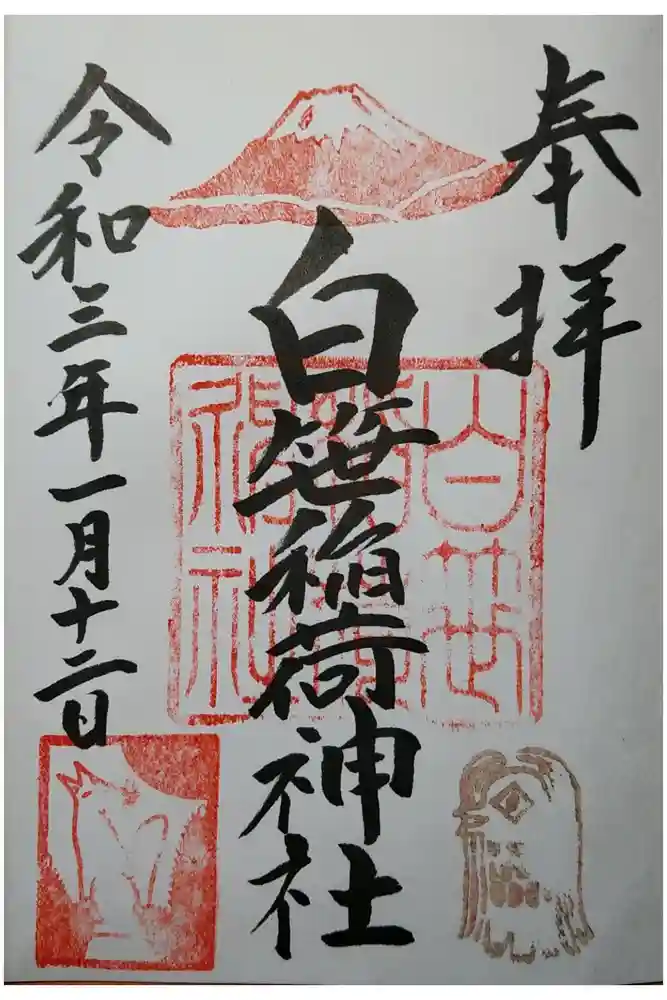 奉拝
白笹稲荷神社
令和三年一月十二日
白笹稲荷神社